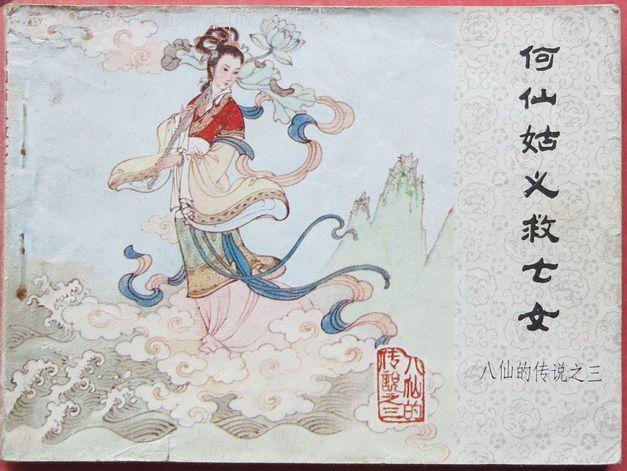 何仙姑义救七女
八仙的传说之三
八仙的
传说之三